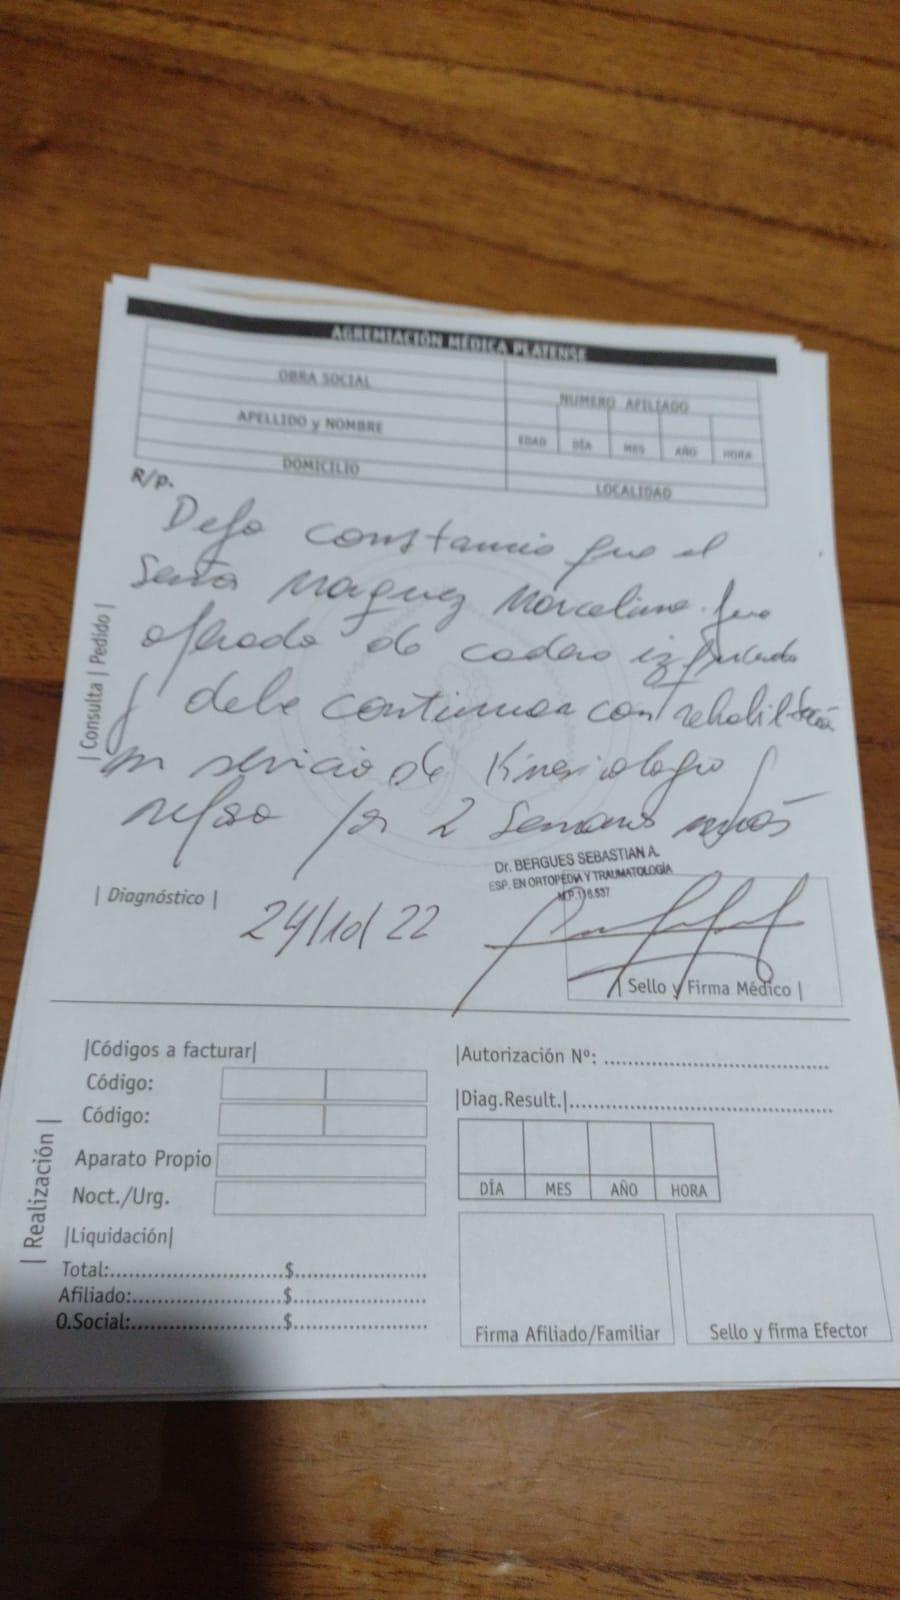 AGREMIACIÓN MÉDICA PLATENSE
OBRA SOCIAL
NUMERO AFILIADO
APELLIDO y NOMBRE
EDAD DÍA MES AÑO HORA
DOMICILIO
LOCALIDAD
R/p.
| Consulta | Pedido |
Dejo constancia que el
Marcelino fue
operado de cadera izquierda
y debe continuar con rehabilitación
en servicio de Kinesiologia
reposo por 2 semanas más
Dr. BERGUES SEBASTIAN A.
ESP. EN ORTOPEDIA Y TRAUMATOLOGÍA
| Diagnóstico |
24/10/22
| Sello y Firma Médico |
| Realización |
|Códigos a facturar|
Código:
Código:
Aparato Propio
Noct./Urg.
|Liquidación|
Total: $
Afiliado: $
O.Social: $
|Autorización Nº:
|Diag.Result.|
DÍA MES AÑO HORA
Firma Afiliado/Familiar
Sello y firma Efector